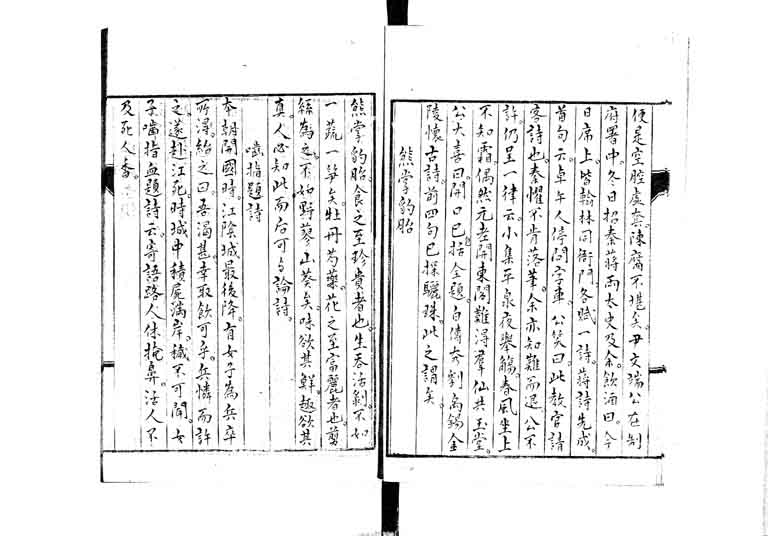 便是空腔虛套陳腐不堪矣尹文端公在制
府署中冬日招秦蔣兩太史及余飲酒曰今
日席上皆翰林同衙門各賦一詩蔣詩先成
首句云卓午人停問字車公笑曰此教官請
客詩也秦懼不肯落筆余亦知難而退公不
許仍呈一律云小集平泉夜舉觴春風坐上
不知霜偶然元老開東閣難得羣仙共玉堂
公大喜曰開口已包括全題白傅夸劉禹錫金
陵懷古詩前四句已探驪珠此之謂矣
熊掌豹胎
熊掌豹胎食之至珍貴者也生吞活剝不如
一蔬一筍矣牡丹芍藥花之至富麗者也剪
綵為之不如野蓼山葵矣味欲其鮮趣欲其
真人必知此而后可與論詩
嚙指題詩
本朝開國時江陰城最後降有女子為兵卒
所得紿之曰吾渴甚幸取飲可乎兵憐而許
之遂赴江死時城中積屍滿岸穢不可聞女
子嚙指血題詩云寄語路人休掩鼻活人不
及死人香